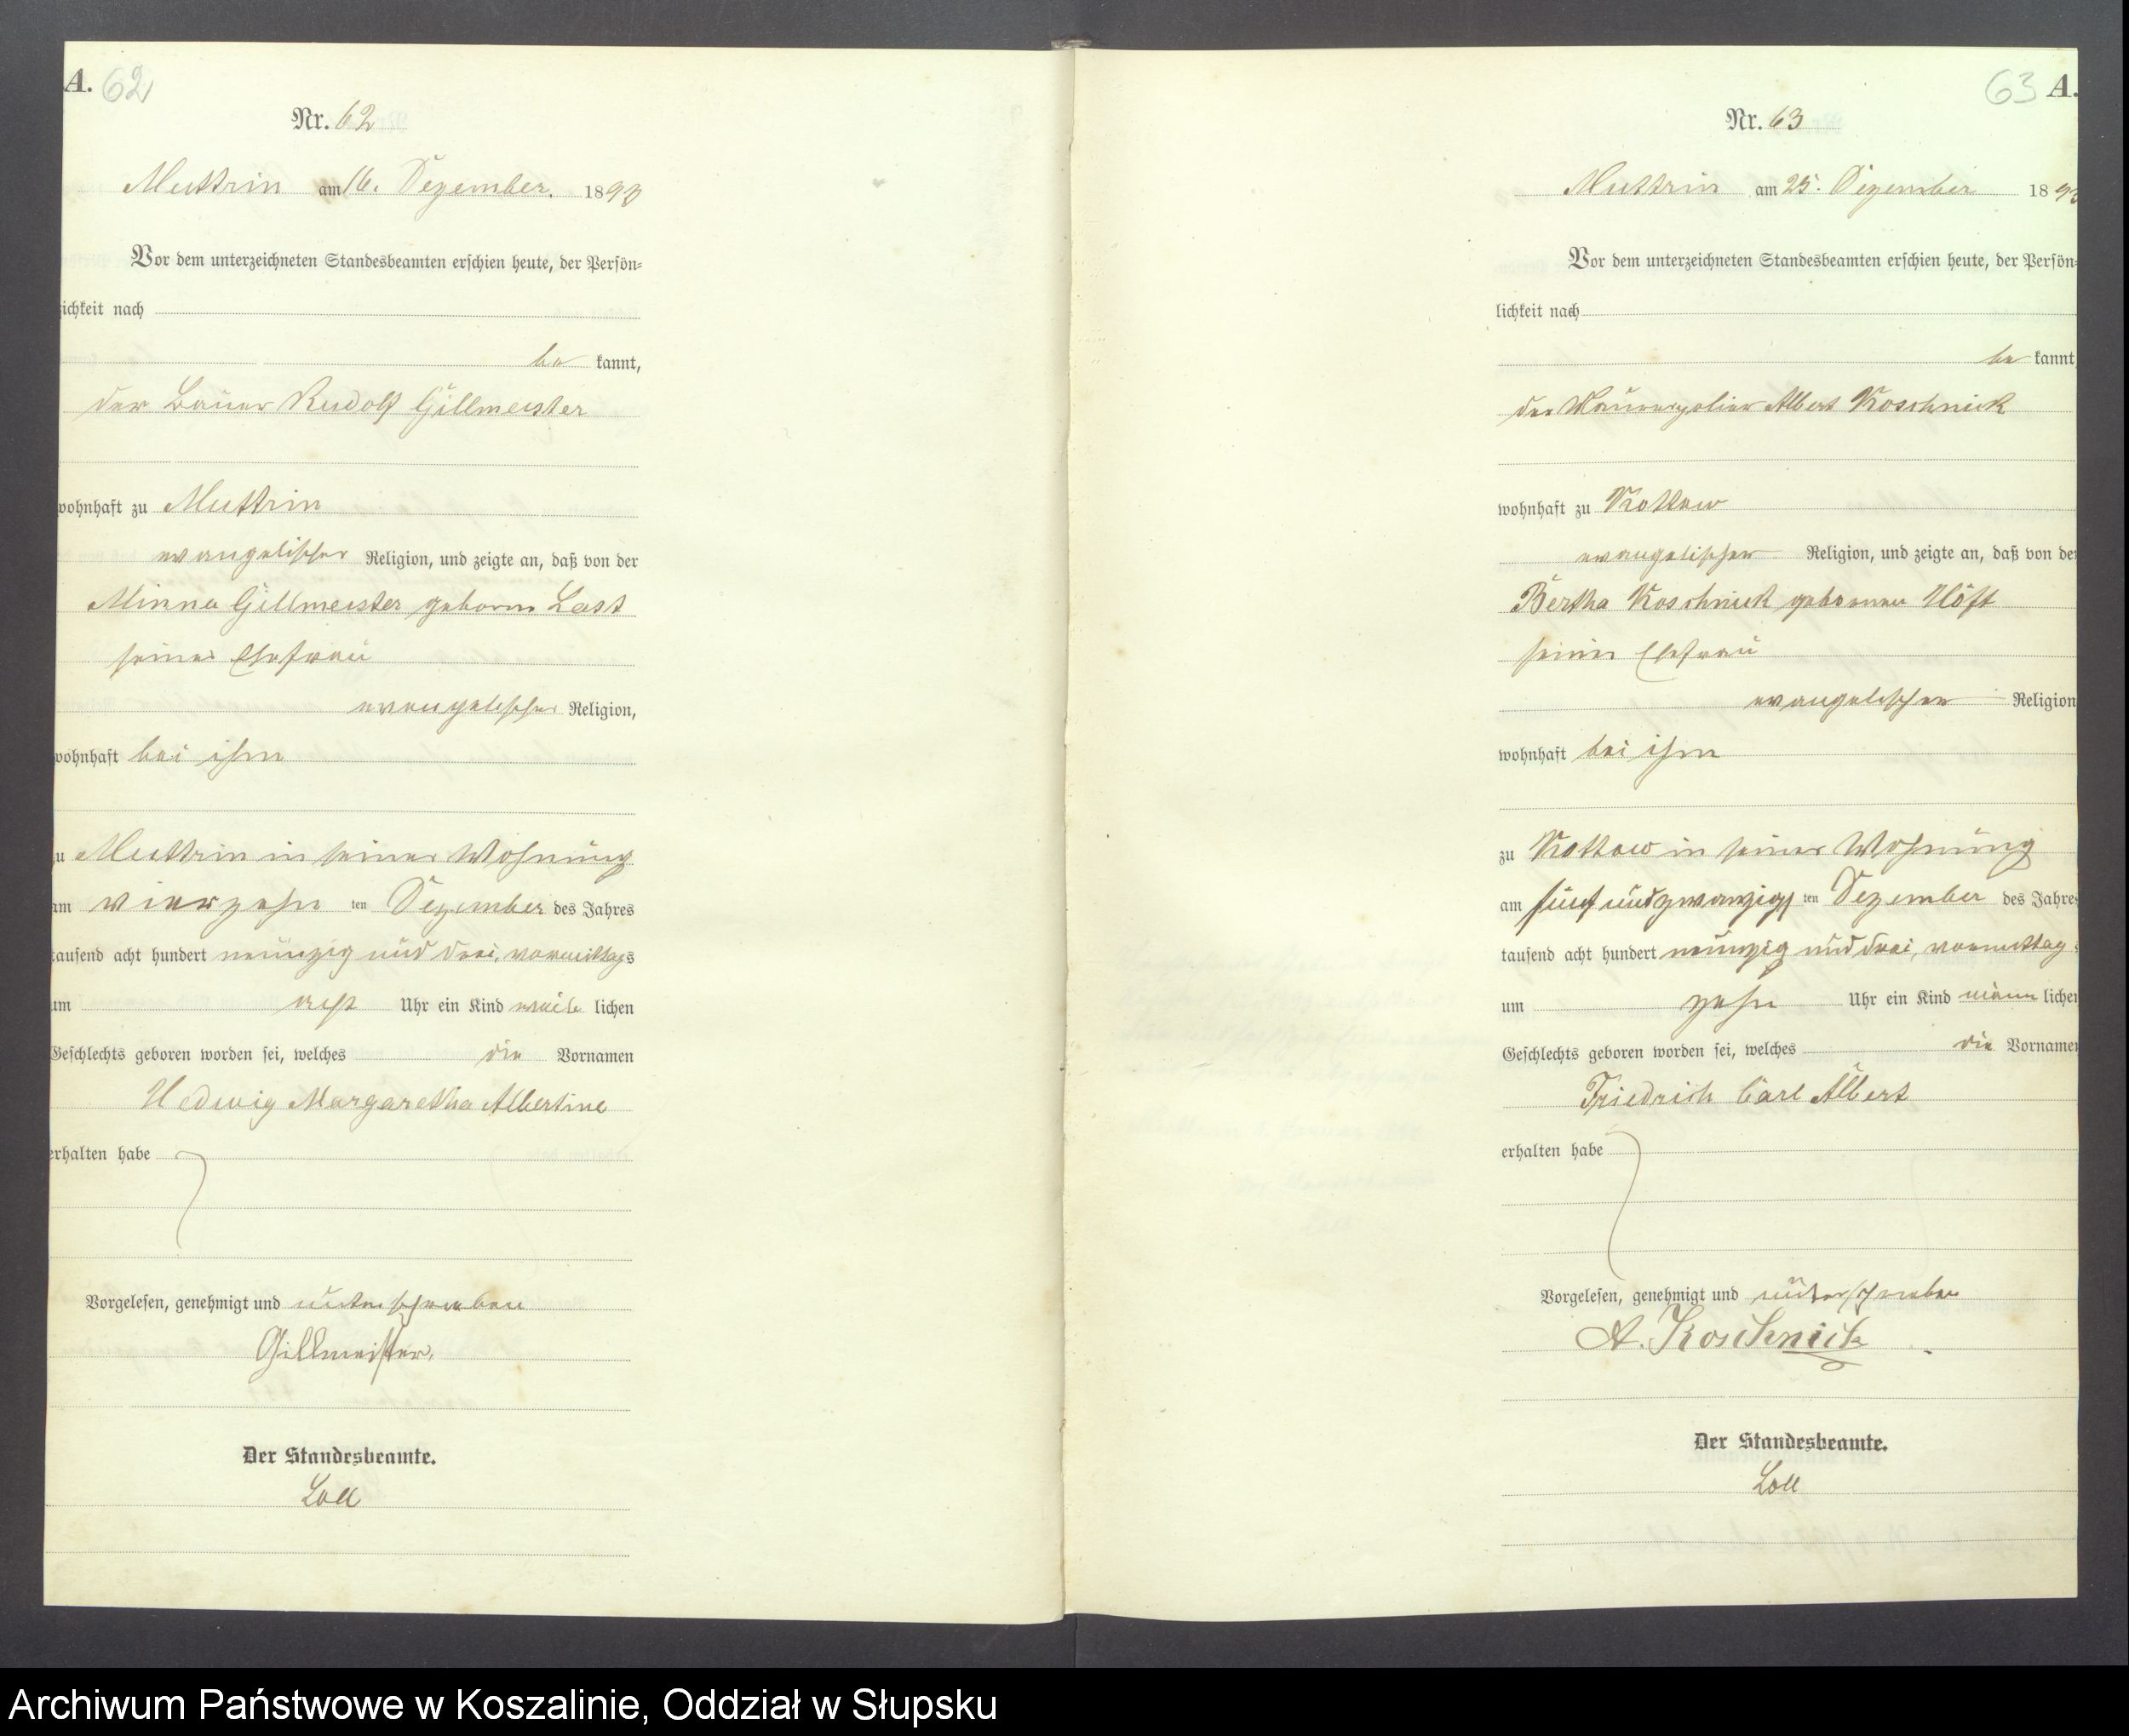 A. 62
Nr. 62
Muttrin am 16. Dezember. 1893
Vor dem unterzeichneten Standesbeamten erschien heute, der Persön-
lichkeit nach
be kannt,
der Bauer Rudolf Gillmeister
wohnhaft zu Muttrin
evangelischer Religion, und zeigte an, daß von der
Minna Gillmeister geborne Last
seiner Ehefrau
evangelischer Religion,
wohnhaft bei ihm
zu Muttrin in seiner Wohnung
am vierzehn ten Dezember des Jahres
tausend acht hundert neunzig und drei, vormittags
um acht Uhr ein Kind weib lichen
Geschlechts geboren worden sei, welches die Vornamen
Hedwig Margaretha Albertine
erhalten habe
Vorgelesen, genehmigt und unterschrieben
Gillmeister.
Der Standesbeamte.
Loll
63 A.
Nr. 63
Muttrin am 25. Dezember 1893
Vor dem unterzeichneten Standesbeamten erschien heute, der Persön-
lichkeit nach
be kannt,
der Maurerpolier Albert Koschnick
wohnhaft zu Kottow
evangelischer Religion, und zeigte an, daß von der
Bertha Koschnick gebornen Höft
seiner Ehefrau
evangelischer Religion
wohnhaft bei ihm
zu Kottow in seiner Wohnung
am fünf und zwanzigs ten Dezember des Jahres
tausend acht hundert neunzig und drei, vormittag s
um zehn Uhr ein Kind männ lichen
Geschlechts geboren worden sei, welches die Vornamen
Friedrich Carl Albert
erhalten habe
Vorgelesen, genehmigt und unterschrieben
A. Koschnick
Der Standesbeamte.
Loll
Archiwum Państwowe w Koszalinie, Oddział w Słupsku